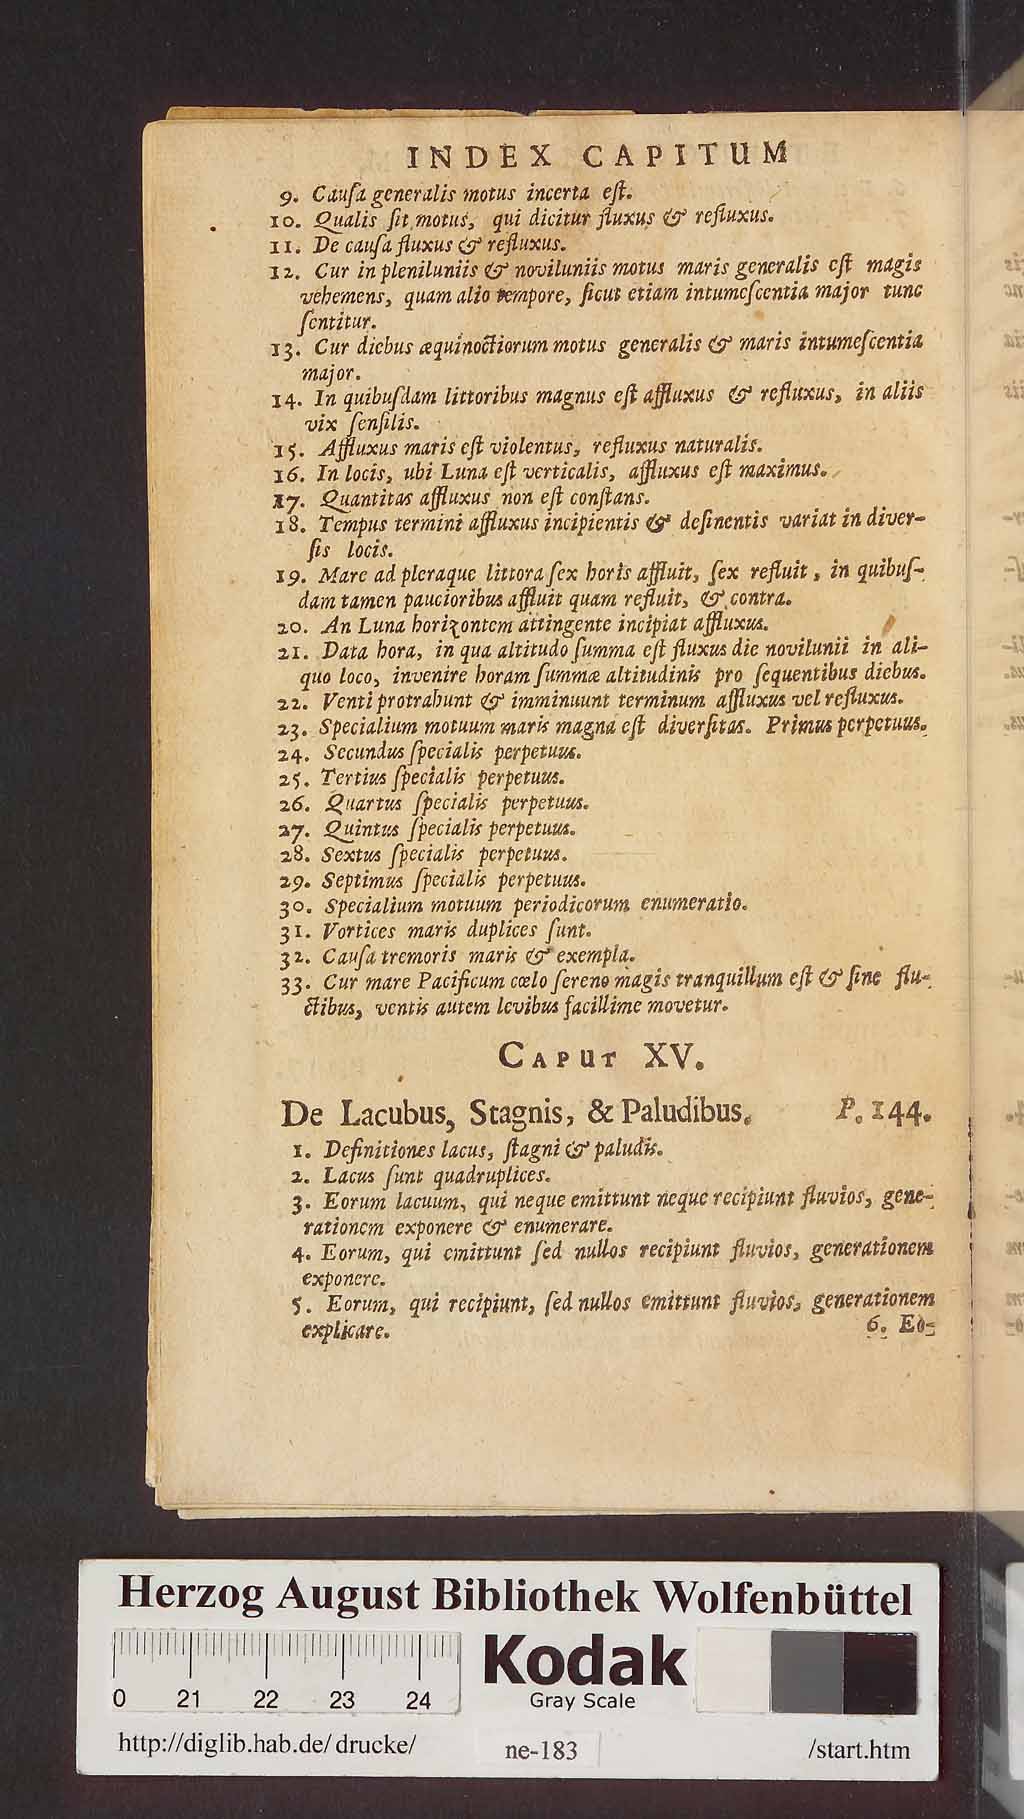 INDEX CAPITUM
9. Cauſa generalis motus incerta eſt.
10. Qualis ſit motus, qui dicitur fluxus & refluxus.
11. De cauſa fluxus & refluxus.
12. Cur in pleniluniis & noviluniis motus maris generalis eſt magis
vehemens, quam alio tempore, ſicut etiam intumeſcentia major tunc
ſentitur.
13. Cur diebus æquinoctiorum motus generalis & maris intumeſcentia
major.
14. In quibuſdam littoribus magnus eſt affluxus & refluxus, in aliis
vix ſenſilis.
15. Affluxus maris eſt violentus, refluxus naturalis.
16. In locis, ubi Luna eſt verticalis, affluxus eſt maximus.
17. Quantitas affluxus non eſt conſtans.
18. Tempus termini affluxus incipientis & deſinentis variat in diver-
ſis locis.
19. Mare ad pleraque littora ſex horis affluit, ſex refluit, in quibuſ-
dam tamen paucioribus affluit quam refluit, & contra.
20. An Luna horizontem attingente incipiat affluxus.
21. Data hora, in qua altitudo ſumma eſt fluxus die novilunii in ali-
quo loco, invenire horam ſummæ altitudinis pro ſequentibus diebus.
22. Venti protrahunt & imminuunt terminum affluxus vel refluxus.
23. Specialium motuum maris magna eſt diverſitas. Primus perpetuus.
24. Secundus ſpecialis perpetuus.
25. Tertius ſpecialis perpetuus.
26. Quartus ſpecialis perpetuus.
27. Quintus ſpecialis perpetuus.
28. Sextus ſpecialis perpetuus.
29. Septimus ſpecialis perpetuus.
30. Specialium motuum periodicorum enumeratio.
31. Vortices maris duplices ſunt.
32. Cauſa tremoris maris & exempla.
33. Cur mare Pacificum cœlo ſereno magis tranquillum eſt & ſine flu-
ctibus, ventis autem levibus facillime movetur.
CAPUT XV.
De Lacubus, Stagnis, & Paludibus. P. 144.
1. Definitiones lacus, ſtagni & paludis.
2. Lacus ſunt quadruplices.
3. Eorum lacuum, qui neque emittunt neque recipiunt fluvios, gene-
rationem exponere & enumerare.
4. Eorum, qui emittunt ſed nullos recipiunt fluvios, generationem
exponere.
5. Eorum, qui recipiunt, ſed nullos emittunt fluvios, generationem
explicare. 6. Eo-
Herzog August Bibliothek Wolfenbüttel
0 21 22 23 24
Kodak
Gray Scale
http://diglib.hab.de/drucke/ ne-183 /start.htm